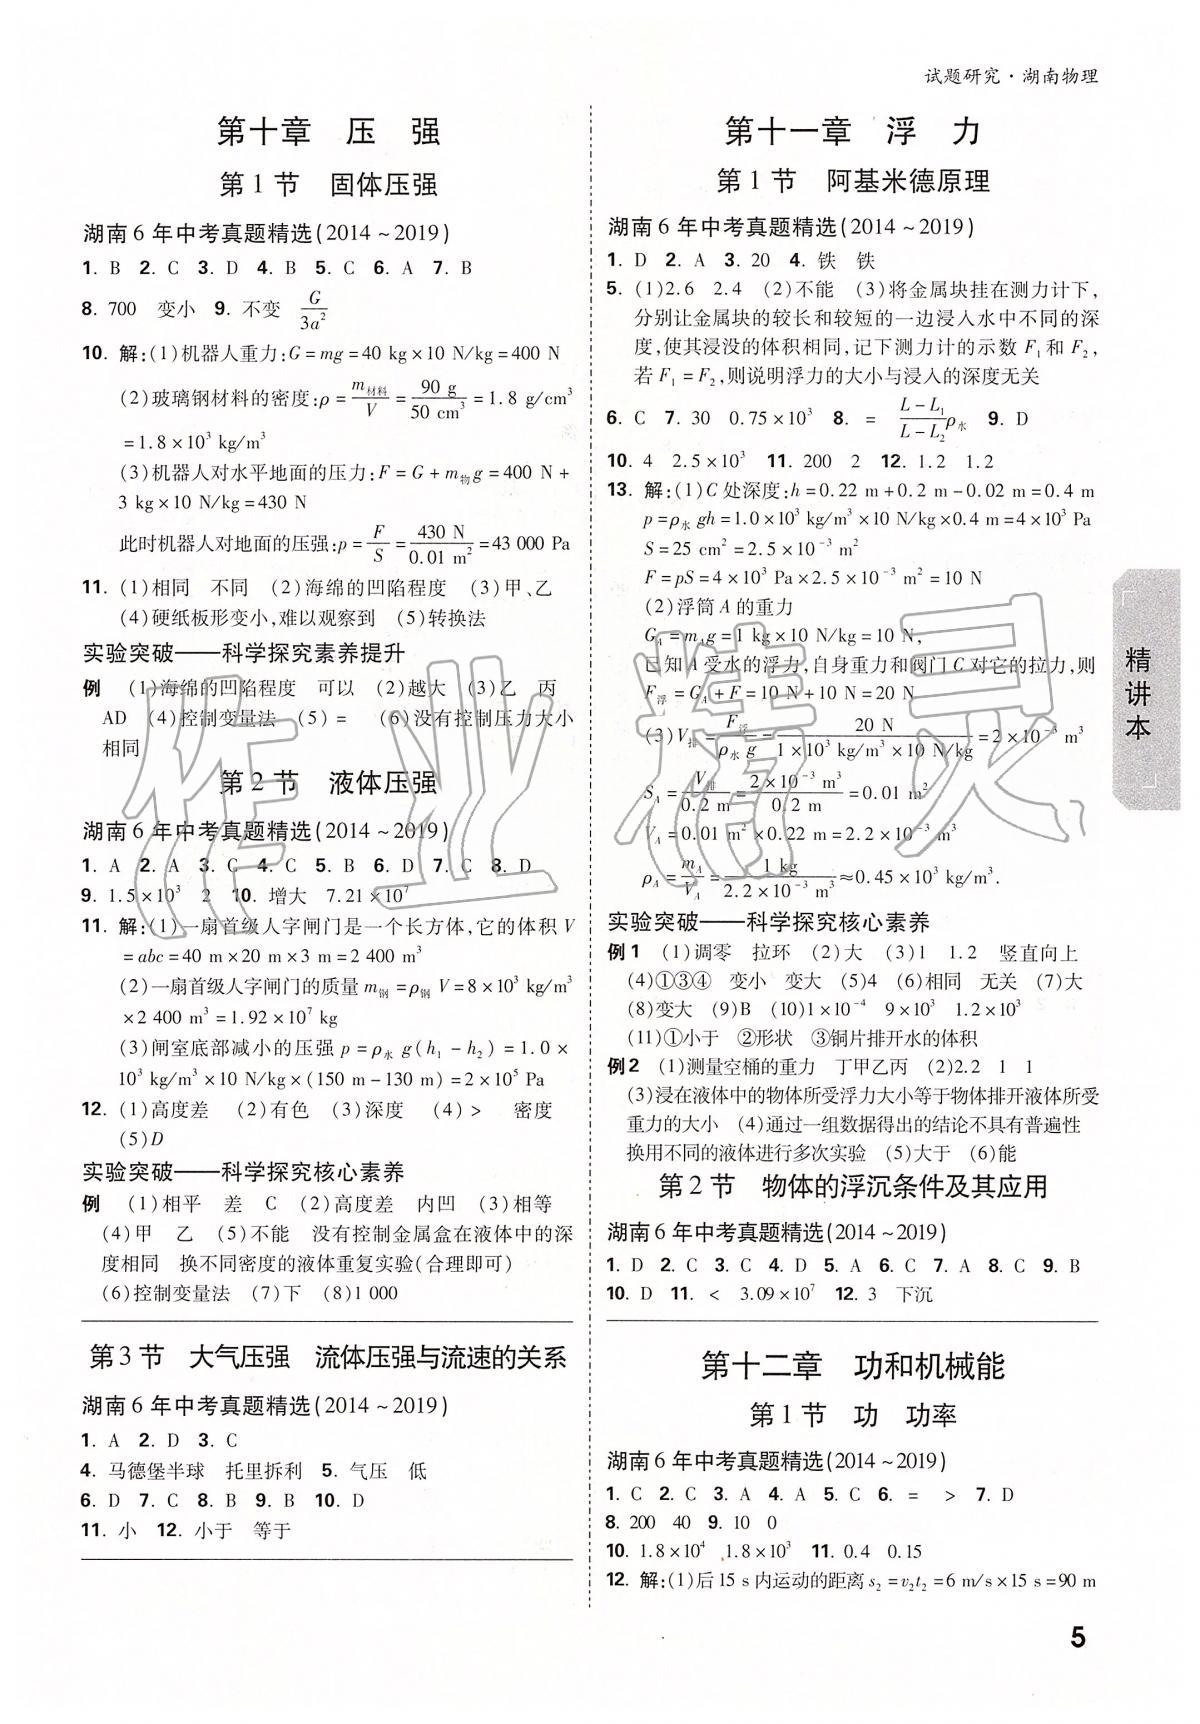 试题研究·湖南物理
第十章 压 强
第1节 固体压强
湖南6年中考真题精选(2014~2019)
1. B 2. C 3. D 4. B 5. C 6. A 7. B
8. 700 变小 9. 不变 G/3a²
10. 解:(1)机器人重力:G=mg=40 kg×10 N/kg=400 N
(2)玻璃钢材料的密度:ρ=m材料/V=90 g/50 cm³=1.8 g/cm³
=1.8×10³ kg/m³
(3)机器人对水平地面的压力:F=G+m物g=400 N+
3 kg×10 N/kg=430 N
此时机器人对地面的压强:p=F/S=430 N/0.01 m²=43 000 Pa
11. (1)相同 不同 (2)海绵的凹陷程度 (3)甲、乙
(4)硬纸板形变小,难以观察到 (5)转换法
实验突破——科学探究素养提升
例 (1)海绵的凹陷程度 可以 (2)越大 (3)乙 丙
AD (4)控制变量法 (5)= (6)没有控制压力大小
相同
第2节 液体压强
湖南6年中考真题精选(2014~2019)
1. A 2. A 3. C 4. C 5. B 6. D 7. C 8. D
9. 1.5×10³ 2 10. 增大 7.21×10⁷
11. 解:(1)一扇首级人字闸门是一个长方体,它的体积V
=abc=40 m×20 m×3 m=2 400 m³
(2)一扇首级人字闸门的质量m钢=ρ钢V=8×10³ kg/m³
×2 400 m³=1.92×10⁷ kg
(3)闸室底部减小的压强p=ρ水g(h₁-h₂)=1.0×
10³ kg/m³×10 N/kg×(150 m-130 m)=2×10⁵ Pa
12. (1)高度差 (2)有色 (3)深度 (4)> 密度
(5)D
实验突破——科学探究核心素养
例 (1)相平 差 C (2)高度差 内凹 (3)相等
(4)甲 乙 (5)不能 没有控制金属盒在液体中的深
度相同 换不同密度的液体重复实验(合理即可)
(6)控制变量法 (7)下 (8)1 000
第3节 大气压强 流体压强与流速的关系
湖南6年中考真题精选(2014~2019)
1. A 2. D 3. C
4. 马德堡半球 托里拆利 5. 气压 低
6. D 7. C 8. B 9. B 10. D
11. 小 12. 小于 等于
第十一章 浮 力
第1节 阿基米德原理
湖南6年中考真题精选(2014~2019)
1. D 2. A 3. 20 4. 铁 铁
5. (1)2.6 2.4 (2)不能 (3)将金属块挂在测力计下,
分别让金属块的较长和较短的一边浸入水中不同的深
度,使其浸没的体积相同,记下测力计的示数F₁和F₂,
若F₁=F₂,则说明浮力的大小与浸入的深度无关
6. C 7. 30 0.75×10³ 8. = (L-L₁)/(L-L₂)ρ水 9. D
10. 4 2.5×10³ 11. 200 2 12. 1.2 1.2
13. 解:(1)C处深度:h=0.22 m+0.2 m-0.02 m=0.4 m
p=ρ水gh=1.0×10³ kg/m³×10 N/kg×0.4 m=4×10³ Pa
S=25 cm²=2.5×10⁻³ m²
F=pS=4×10³ Pa×2.5×10⁻³ m²=10 N
(2)浮筒A的重力
G_A=m_Ag=1 kg×10 N/kg=10 N,
已知A受水的浮力,自身重力和阀门C对它的拉力,则
F浮=G_A+F=10 N+10 N=20 N
(3)V排=F浮/(ρ水g)=20 N/(1×10³ kg/m³×10 N/kg)=2×10⁻³ m³
S_A=V排/0.2 m=(2×10⁻³ m³)/(0.2 m)=0.01 m²
V_A=0.01 m²×0.22 m=2.2×10⁻³ m³
ρ_A=m_A/V_A=1 kg/(2.2×10⁻³ m³)≈0.45×10³ kg/m³.
实验突破——科学探究核心素养
例1 (1)调零 拉环 (2)大 (3)1 1.2 竖直向上
(4)①③④ 变小 变大 (5)4 (6)相同 无关 (7)大
(8)变大 (9)B (10)1×10⁻⁴ 9×10³ 1.2×10³
(11)①小于 ②形状 ③铜片排开水的体积
例2 (1)测量空桶的重力 丁甲乙丙 (2)2.2 1 1
(3)浸在液体中的物体所受浮力大小等于物体排开液体所受
重力的大小 (4)通过一组数据得出的结论不具有普遍性
换用不同的液体进行多次实验 (5)大于 (6)能
第2节 物体的浮沉条件及其应用
湖南6年中考真题精选(2014~2019)
1. D 2. C 3. C 4. D 5. A 6. C 7. A 8. C 9. B
10. D 11. < 3.09×10⁷ 12. 3 下沉
第十二章 功和机械能
第1节 功 功率
湖南6年中考真题精选(2014~2019)
1. C 2. C 3. A 4. A 5. C 6. = > 7. D
8. 200 40 9. 10 0
10. 1.8×10⁴ 1.8×10³ 11. 0.4 0.15
12. 解:(1)后15 s内运动的距离s₂=v₂t₂=6 m/s×15 s=90 m
精讲本
5
作业精灵